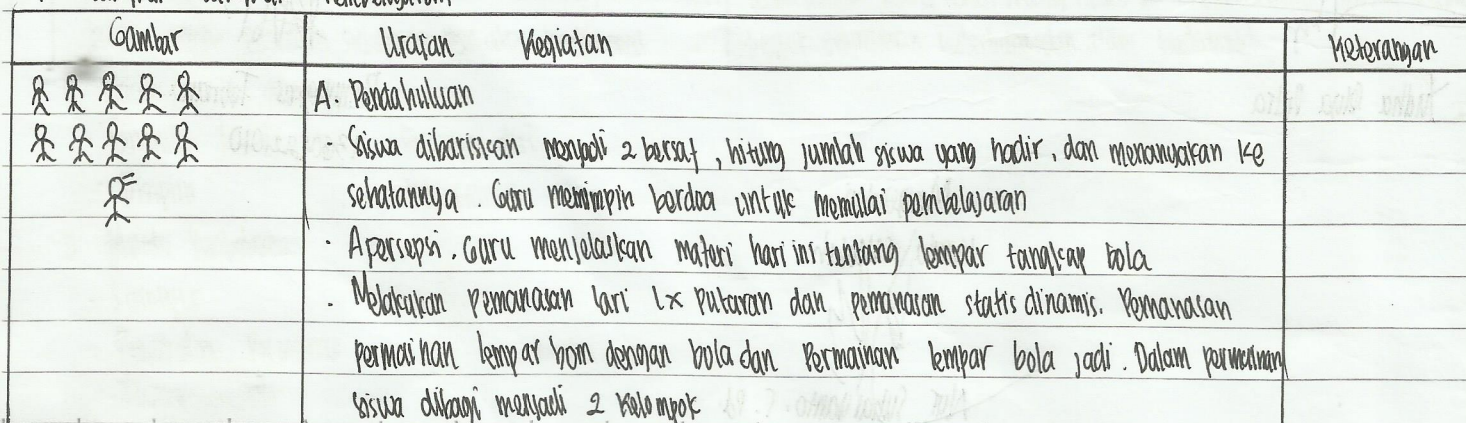 Gambar Uraian Kegiatan Keterangan
A. Pendahuluan
Siswa dibariskan menjadi 2 bersaf, hitung jumlah siswa yang hadir, dan menanyakan ke
sehatannya. Guru memimpin berdoa untuk memulai pembelajaran
· Apersepsi. Guru menjelaskan materi hari ini tentang lempar tangkap bola
· Melakukan pemanasan lari 1x putaran dan pemanasan statis dinamis. Pemanasan
permainan lempar bom dengan bola dan Permainan lempar bola jadi. Dalam permainan
siswa dibagi menjadi 2 kelompok